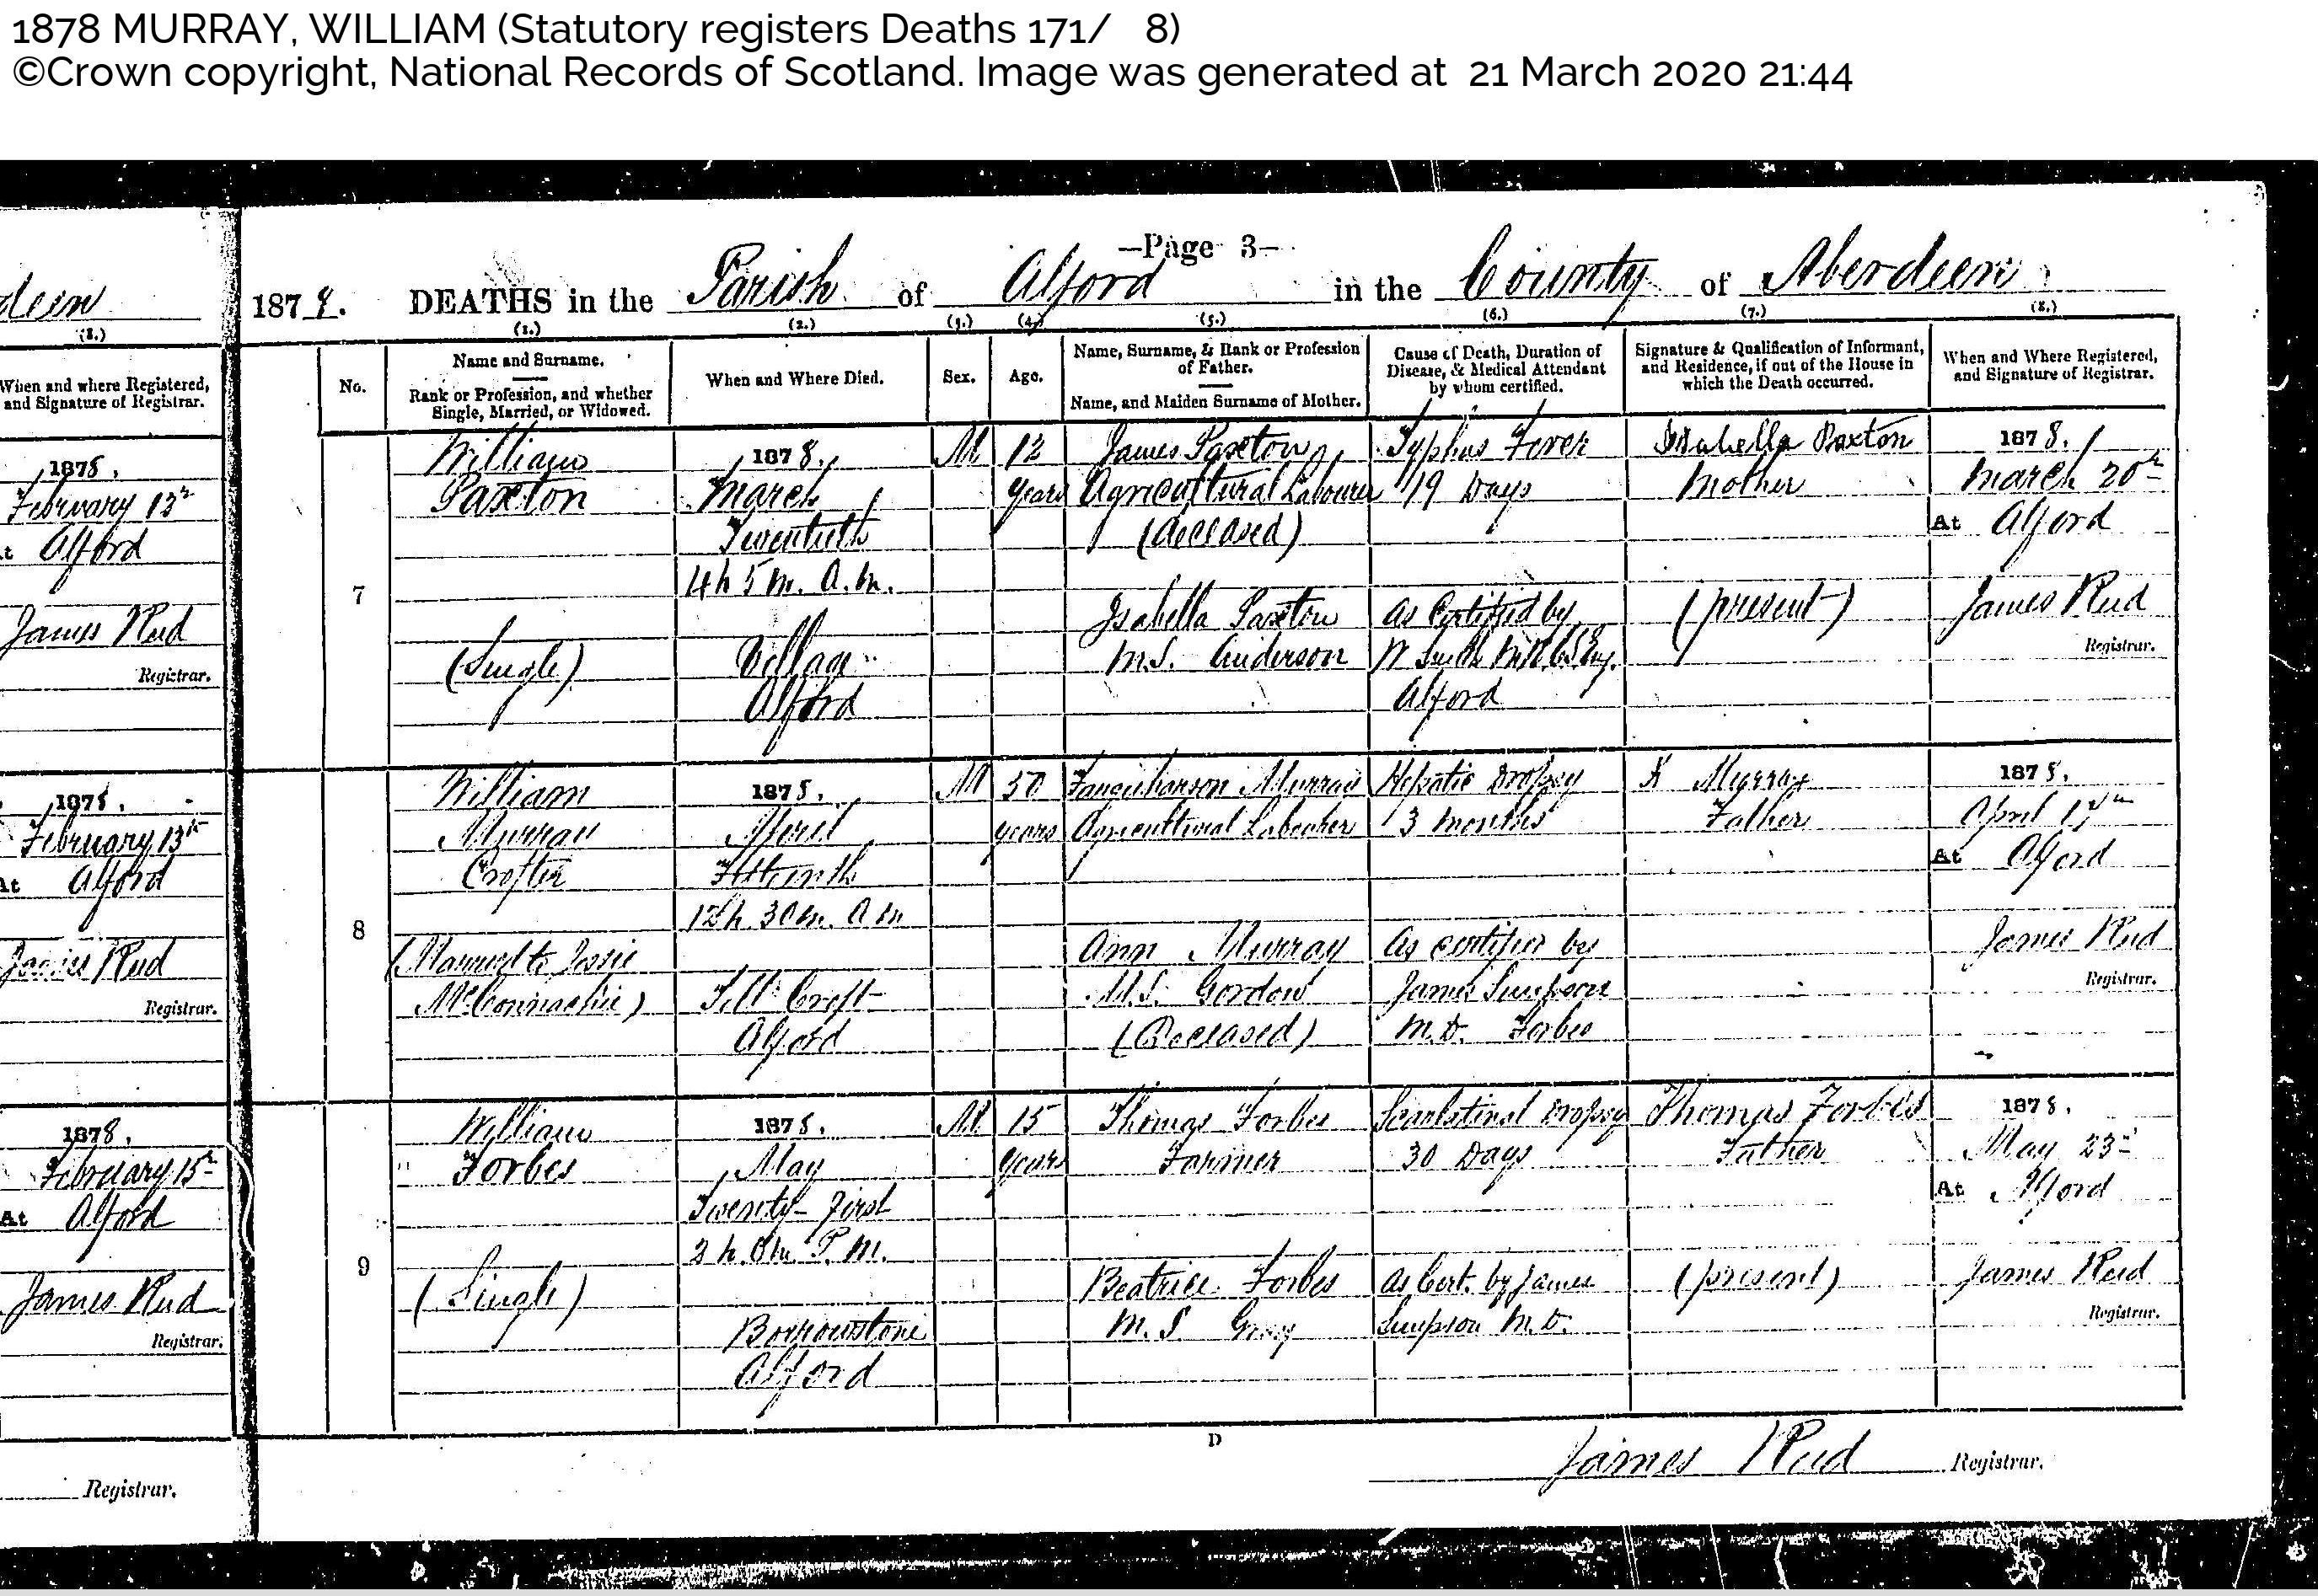 1878 MURRAY, WILLIAM (Statutory registers Deaths 171/ 8)
©Crown copyright, National Records of Scotland. Image was generated at 21 March 2020 21:44
—Page 3—
1878. DEATHS in the Parish of Alford in the County of Aberdeen
deen
(8.)
When and where Registered,
and Signature of Registrar.
1878.
February 13th
At Alford
James Reid
Registrar.
1878.
February 13th
At Alford
James Reid
Registrar.
1878.
February 15th
At Alford
James Reid
Registrar.
Registrar.
(1.) (2.) (3.) (4.) (5.) (6.) (7.) (8.)
No.
Name and Surname.
Rank or Profession, and whether
Single, Married, or Widowed.
When and Where Died.
Sex.
Age.
Name, Surname, & Rank or Profession
of Father.
Name, and Maiden Surname of Mother.
Cause of Death, Duration of
Disease, & Medical Attendant
by whom certified.
Signature & Qualification of Informant,
and Residence, if out of the House in
which the Death occurred.
When and Where Registered,
and Signature of Registrar.
7
William
Paxton
(Single)
1878.
March
Twentieth
4h 5m. A.M.
Village
Alford
M
12
years
James Paxton
Agricultural Labourer
(deceased)
Isabella Paxton
M.S. Anderson
Typhus Fever
19 Days
As Certified by
W Smith
Alford
Isabella Paxton
Mother
(present)
1878.
March 20th
At Alford
James Reid
Registrar.
8
William
Murray
Crofter
(Married to Jessie
McConnachie)
1878.
April
Fifteenth
12h. 30m. A.M
Croft
Alford
M
50
years
Farquharson Murray
Agricultural Labourer
Ann Murray
M.S. Gordon
(Deceased)
Hepatic Dropsy
3 Months
As certified by
James Simpson
M.D. Forbes
Murray
Father
1878.
April
At Alford
James Reid
Registrar.
9
William
Forbes
(Single)
1878.
May
Twenty-first
h. 0m. P.M.
Borrowstone
Alford
M.
15
years
Thomas Forbes
Farmer
Beatrice Forbes
M.S. Gray
Scarlatinal Dropsy
30 Days
As Cert. by James
Simpson M.D.
Thomas Forbes
Father
(present)
1878.
May 23rd
At Alford
James Reid
Registrar.
D
James Reid Registrar.